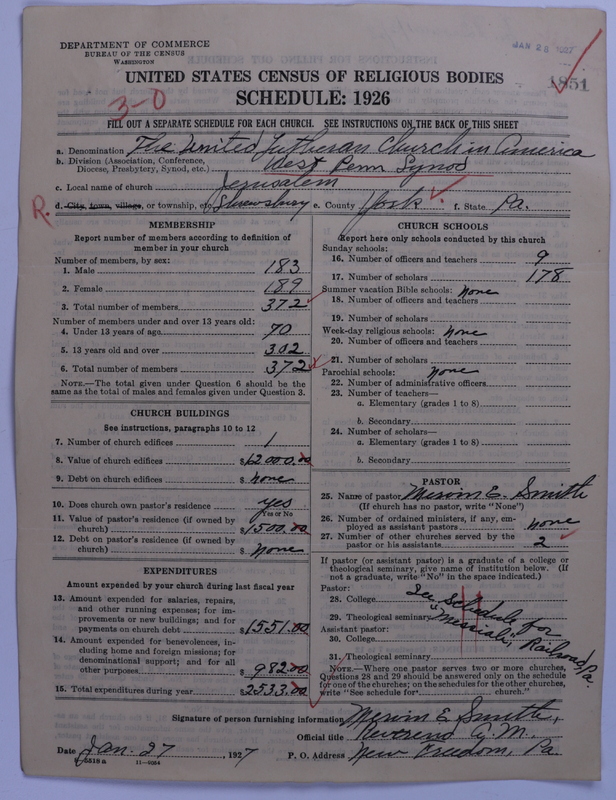 DEPARTMENT OF COMMERCE
BUREAU OF THE CENSUS
WASHINGTON
JAN 28 1927
1851
UNITED STATES CENSUS OF RELIGIOUS BODIES
SCHEDULE: 1926
3-0
FILL OUT A SEPARATE SCHEDULE FOR EACH CHURCH. SEE INSTRUCTIONS ON THE BACK OF THIS SHEET
a. Denomination The United Lutheran Church in America
b. Division (Association, Conference, Diocese, Presbytery, Synod, etc.) West Penn Synod
c. Local name of church Jerusalem
R. d. City, town, village, or township, etc. Shrewsbury e. County York f. State Pa.
MEMBERSHIP
Report number of members according to definition of member in your church
Number of members, by sex:
1. Male 183
2. Female 189
3. Total number of members 372
Number of members under and over 13 years old:
4. Under 13 years of age 70
5. 13 years old and over 302
6. Total number of members 372
NOTE.—The total given under Question 6 should be the same as the total of males and females given under Question 3.
CHURCH BUILDINGS
See instructions, paragraphs 10 to 12
7. Number of church edifices 1
8. Value of church edifices $12000.00
9. Debt on church edifices $ none
10. Does church own pastor's residence yes
Yes or No
11. Value of pastor's residence (if owned by church) $1500.00
12. Debt on pastor's residence (if owned by church) $ none
EXPENDITURES
Amount expended by your church during last fiscal year
13. Amount expended for salaries, repairs, and other running expenses; for improvements or new buildings; and for payments on church debt $1551.00
14. Amount expended for benevolences, including home and foreign missions; for denominational support; and for all other purposes $982.00
15. Total expenditures during year $2533.00
CHURCH SCHOOLS
Report here only schools conducted by this church
Sunday schools:
16. Number of officers and teachers 9
17. Number of scholars 178
Summer vacation Bible schools: none
18. Number of officers and teachers
19. Number of scholars
Week-day religious schools: none
20. Number of officers and teachers
21. Number of scholars
Parochial schools: none
22. Number of administrative officers
23. Number of teachers—
a. Elementary (grades 1 to 8)
b. Secondary
24. Number of scholars—
a. Elementary (grades 1 to 8)
b. Secondary
PASTOR
25. Name of pastor Mervin E. Smith
(If church has no pastor, write "None")
26. Number of ordained ministers, if any, employed as assistant pastors none
27. Number of other churches served by the pastor or his assistants 2
If pastor (or assistant pastor) is a graduate of a college or theological seminary, give name of institution below. (If not a graduate, write "No" in the space indicated.)
Pastor:
28. College
29. Theological seminary
See schedule for "Messiah", Railroad Pa.
Assistant pastor:
30. College
31. Theological seminary
NOTE.—Where one pastor serves two or more churches, Questions 28 and 29 should be answered only on the schedule for one of the churches; on the schedules for the other churches, write "See schedule for church."
Signature of person furnishing information Mervin E. Smith,
Official title Reverend
Date Jan. 27 1927 P. O. Address New Freedom, Pa.
8-5518 a 11—9054